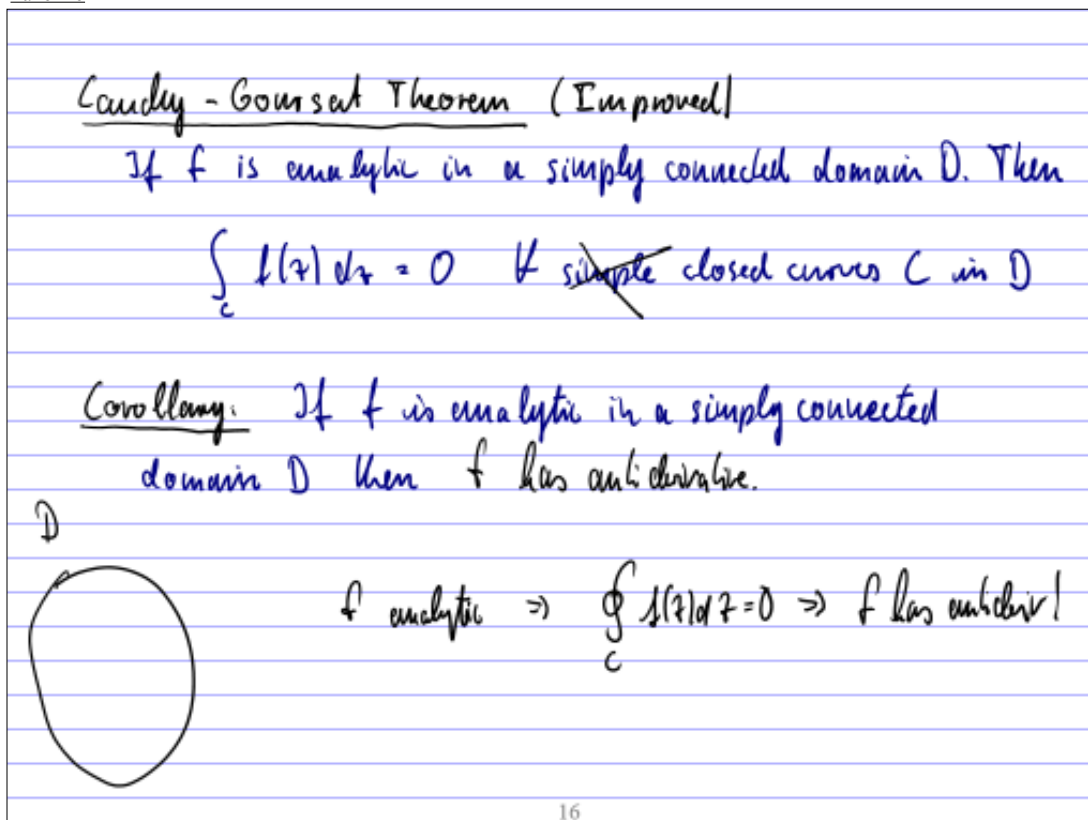 Cauchy - Goursat Theorem (Improved)
If f is analytic in a simply connected domain D. Then
∫_C f(z) dz = 0 ∀ simple closed curves C in D
Corollary. If f is analytic in a simply connected
domain D then f has antiderivative.
D
f analytic => ∮_C f(z)dz=0 => f has antideriv!
16